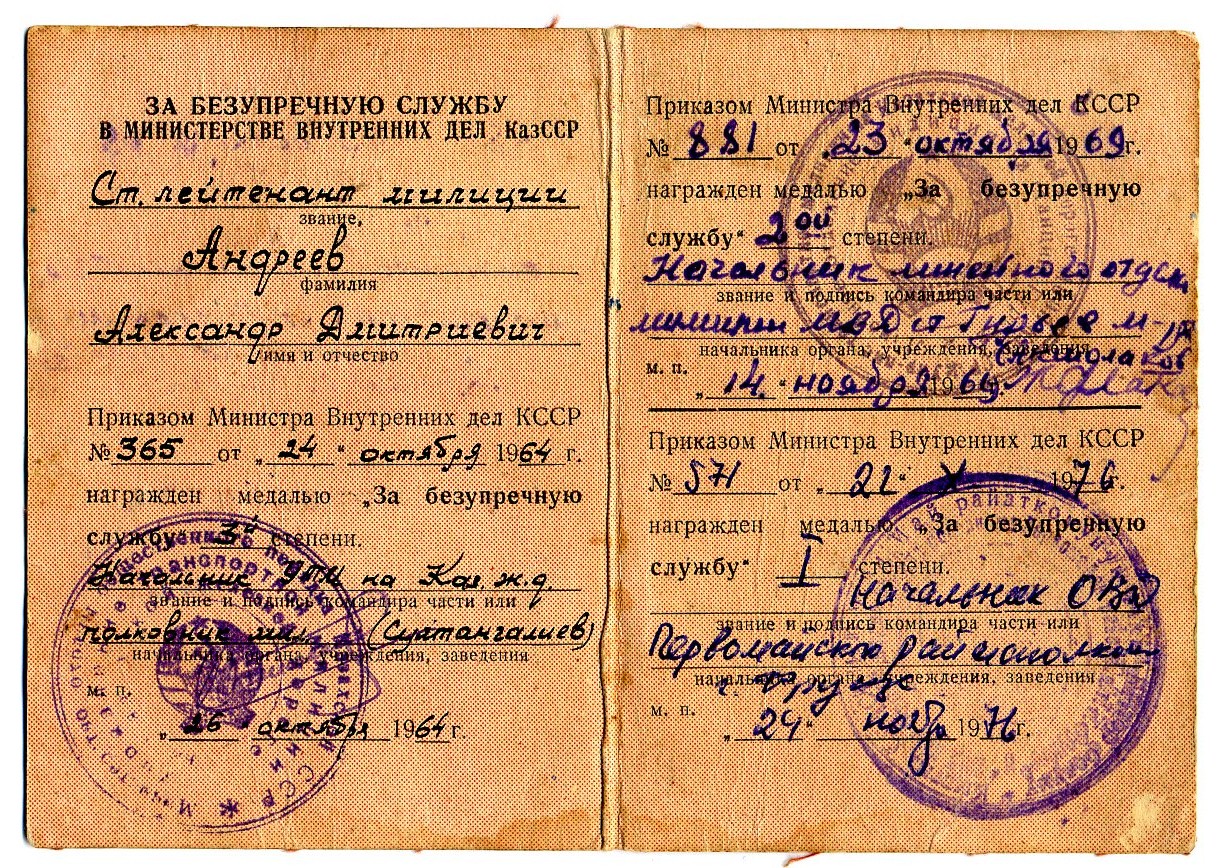 ЗА БЕЗУПРЕЧНУЮ СЛУЖБУ
В МИНИСТЕРСТВЕ ВНУТРЕННИХ ДЕЛ КазССР
Ст. лейтенант милиции
звание,
Андреев
фамилия
Александр Дмитриевич
имя и отчество
Приказом Министра Внутренних дел КССР
№ 365 от „24" октября 1964 г.
награжден медалью „За безупречную
службу" 3й степени.
Начальник на Каз. ж. д.
звание и подпись командира части или
полковник мил. (Султангалиев)
начальника органа, учреждения, заведения
м. п.
„26 октября 1964 г.
Приказом Министра Внутренних дел КССР
№ 881 от „23" октября 1969 г.
награжден медалью „За безупречную
службу" 2ой степени.
Начальник линейного отдел
звание и подпись командира части или
милиции МВД ст Гурьев м-р
начальника органа, учреждения, заведения
м. п.
„14." ноября 1969г.
Приказом Министра Внутренних дел КССР
№ 571 от „21" X 1976г.
награжден медалью „За безупречную
службу" I степени.
Начальник ОВД
звание и подпись командира части или
Первомайского райисполкома
начальника органа, учреждения, заведения
м. п.
„24 ноября 1976г.